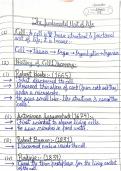 The fundamental Unit of Life
(1) Cell: A cell is the basic structural & functional
unit of life, it is known
Cell → Tissue → Organ → Organ System → Organism
(2) History of Cell Discovery:
(i) Robert Hooke: (1665)
First discovered the cell
Observed thin slice of cork (from oak tree)
under a microscope
He saw small box-like structure & named the
cells
(ii) Antonie van Leeuwenhoek (1674):
First scientist to observe living cells.
He saw in pond water
(iii) Robert Brown: (1831)
Discovered nucleus inside the cell
(iv) Purkinje: (1839)
Coined the term protoplasm for the living content
of the cell